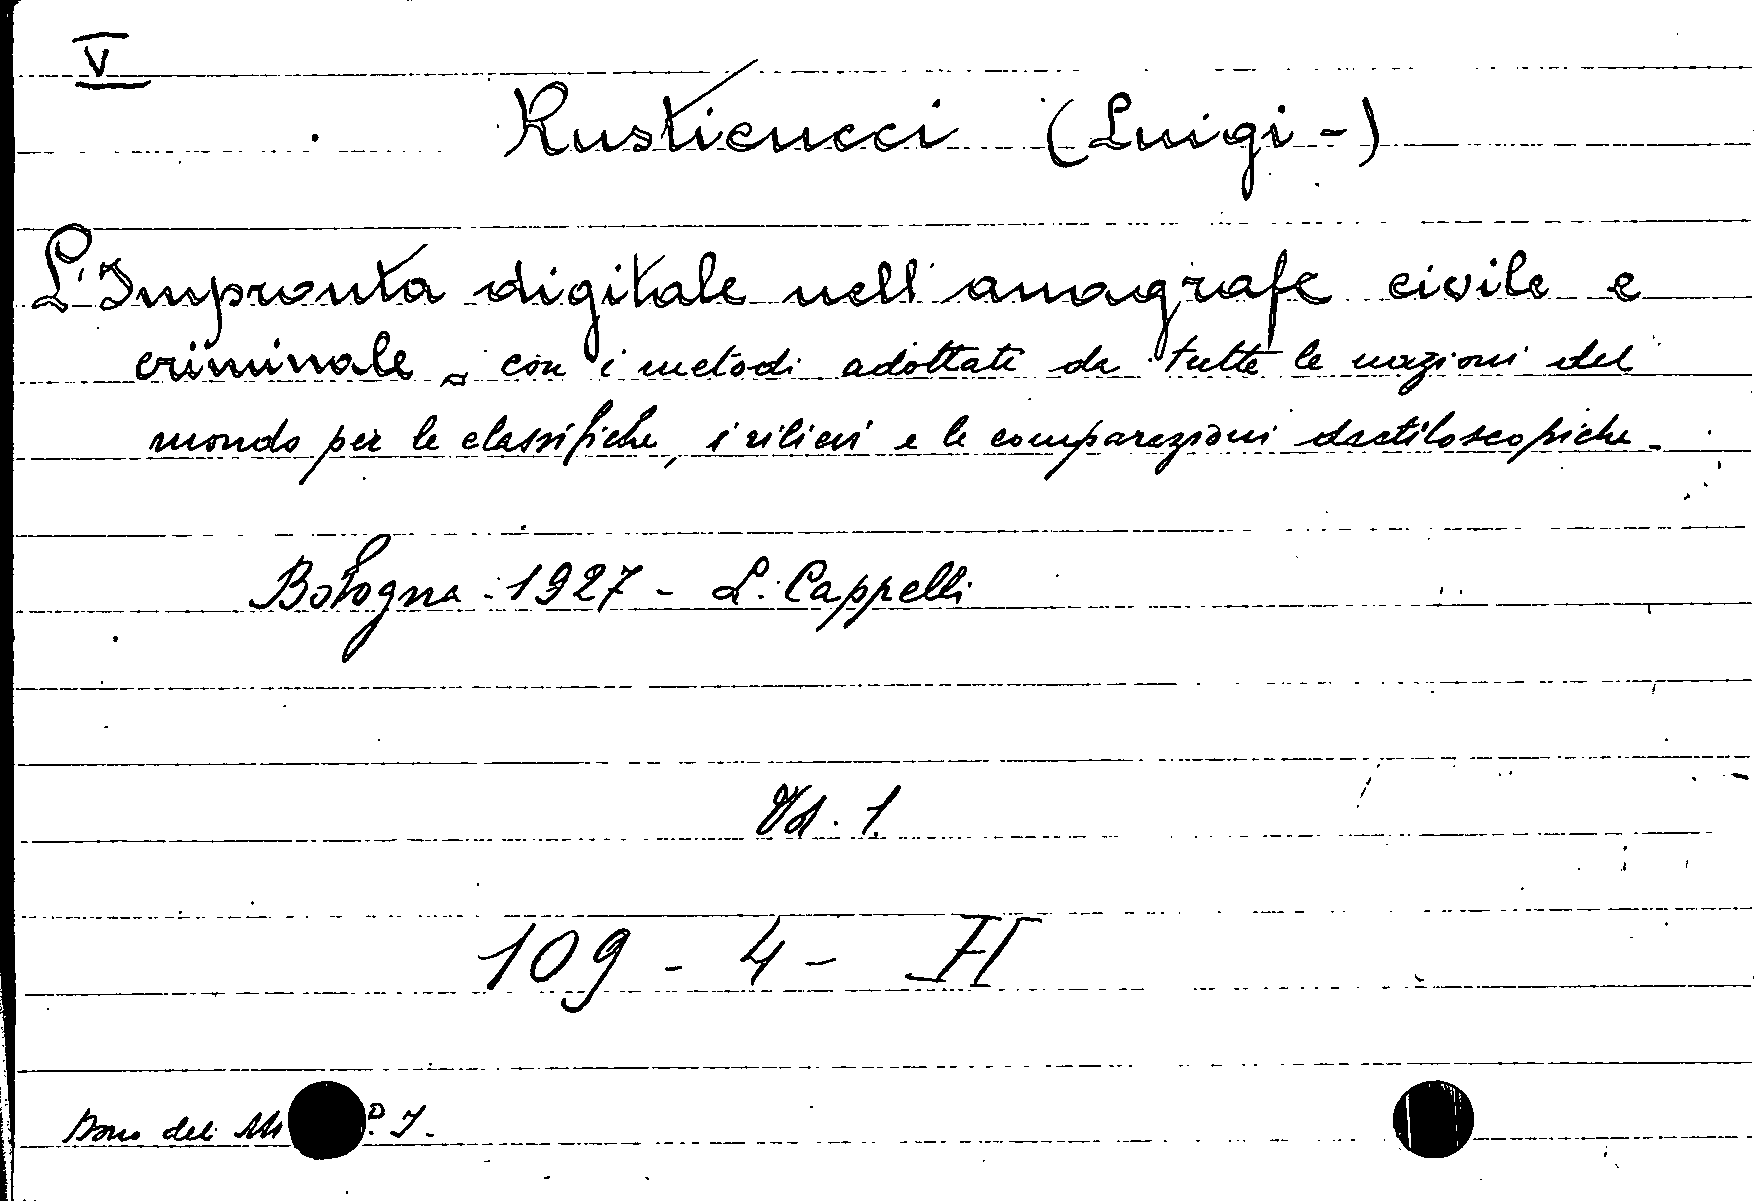 V
Rusticucci (Luigi -)
L'Impronta digitale nell'anagrafe civile e
criminale - con i metodi adottati da tutte le nazioni del
mondo per le classifiche, i rilievi e le comparazioni dactiloscopiche -
Bologna - 1927 - L. Cappelli
Vol. 1.
109 - 4 - II
Dono del P. I.